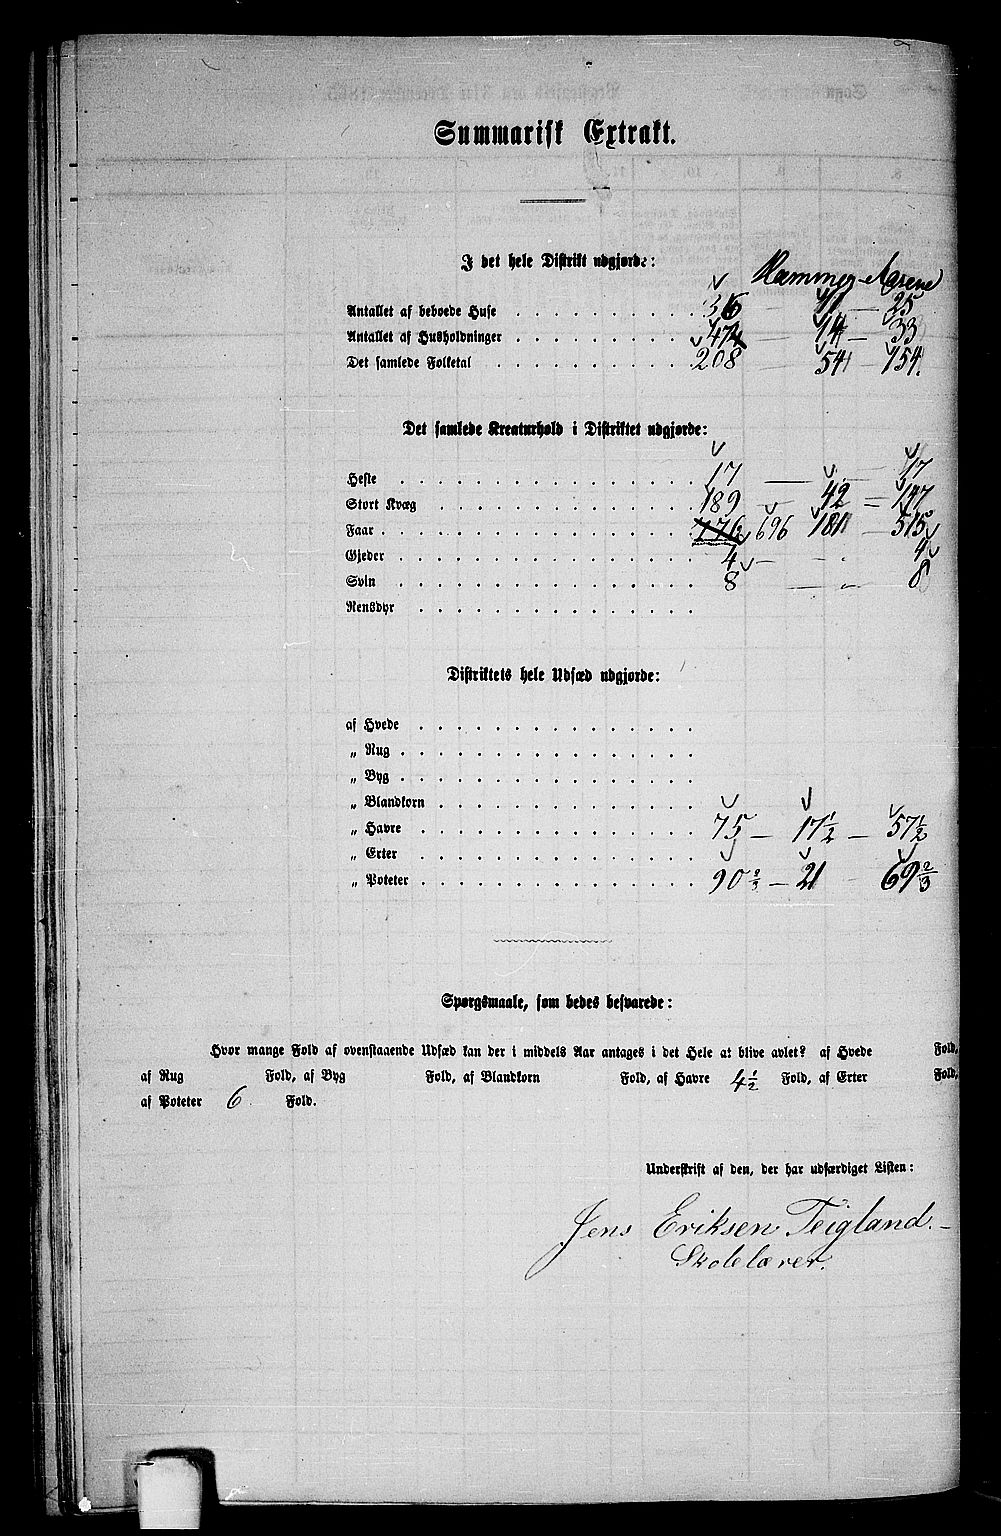 Summarisk Extrakt.
I det hele Distrikt udgjorde:
Antallet af beboede Huse 36 — 11 — 25
Antallet af Husholdninger 47 — 14 — 33
Det samlede Folketal 208 — 54 — 154.
Det samlede Kreaturhold i Distriktet udgjorde:
Heste 17 — " — 17
Stort Kvæg 189 — 42 = 147
Faar 776 696 181 — 515
Gjeder 4 — " 4
Svin 8 — " 8
Rensdyr
Distriktets hele Udsæd udgjorde:
af Hvede
„ Rug
„ Byg
„ Blandkorn
„ Havre 75 — 17½ — 57½
„ Erter
„ Poteter 90⅔ — 21 69⅔
Spørgsmaale, som bedes besvarede:
Hvor mange Fold af ovenstaaende Udsæd kan der i middels Aar antages i det Hele at blive avlet? af Hvede Fold,
af Rug Fold, af Byg Fold, af Blandkorn Fold, af Havre 4½ Fold, af Erter Fold,
af Poteter 6 Fold.
Underskrift af den, der har udfærdiget Listen:
Jens Eriksen Teigland.
Skolelærer.